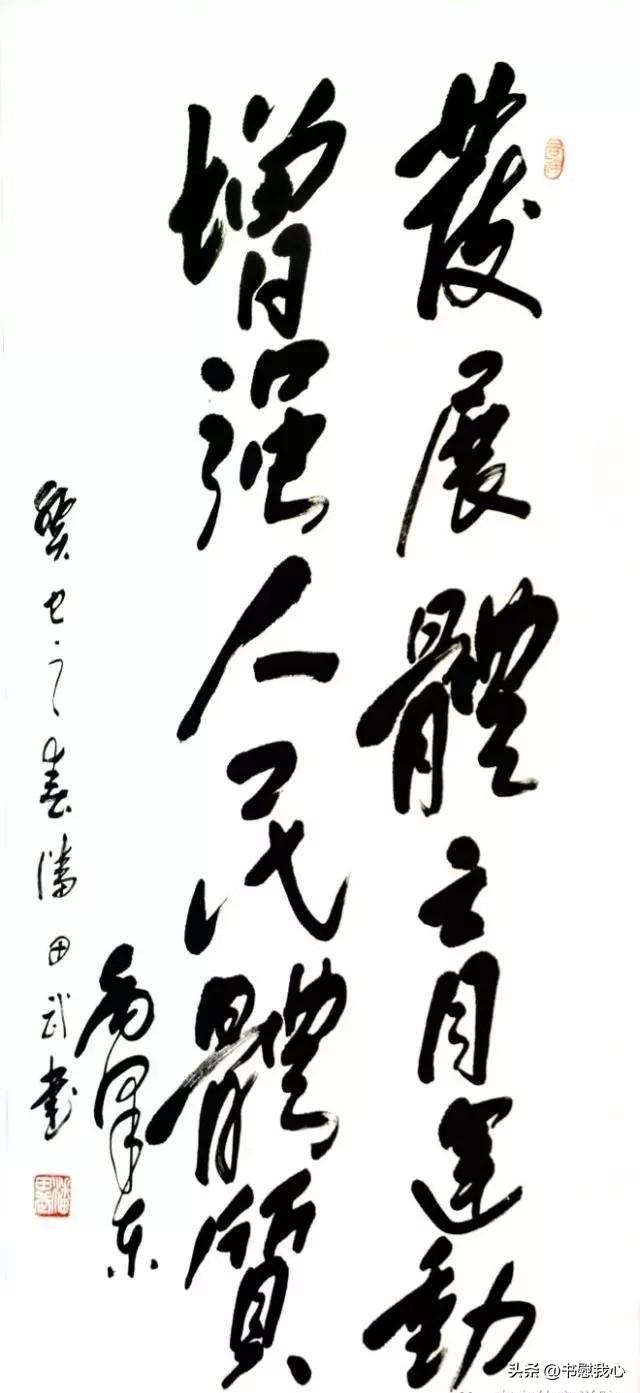 發展體育運動
增强人民體質
毛澤东
癸巳之春潘田武書
头条 @书慰我心